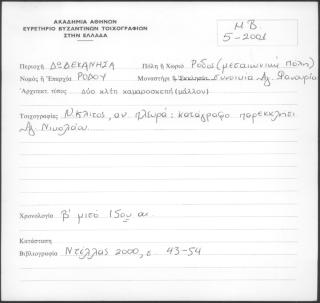 ΑΚΑΔΗΜΙΑ ΑΘΗΝΩΝ
ΕΥΡΕΤΗΡΙΟ ΒΥΖΑΝΤΙΝΩΝ ΤΟΙΧΟΓΡΑΦΙΩΝ
ΣΤΗΝ ΕΛΛΑΔΑ
Μ.Β.
5-2001
Περιοχή ΔΩΔΕΚΑΝΗΣΑ Πόλη ή Χωριό Ρόδος (μεσαιωνική πόλη)
Νομός ή Έπαρχία ΡΟΔΟΥ Μοναστήρι ή Εκκλησία Συνοικία Αγ. Φανουρίου
Άρχιτεκτ. τύπος δύο κλίτη καμαροσκεπή (μάλλον)
Τοιχογραφίες Ν. κλίτος, αν. πλευρά: κατάγραφο παρεκκλήσι
Αγ. Νικολάου
Χρονολογία Β' μισό 15ου αι.
Κατάσταση
Βιβλιογραφία Ντέλλας 2000, σ. 43-54